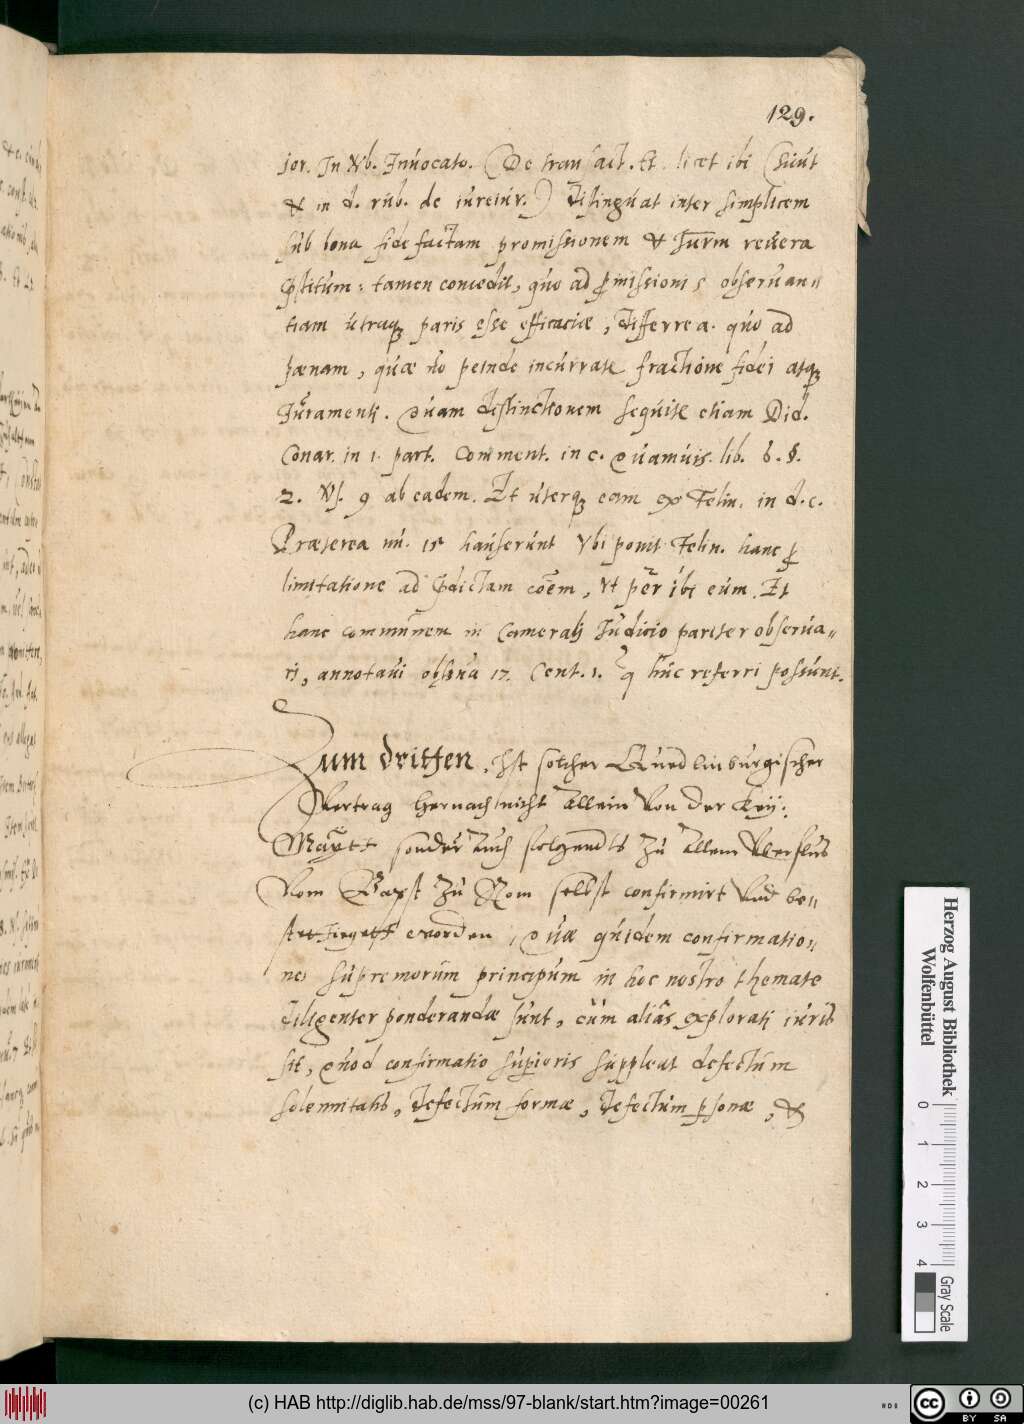 129.
ior. in Vb. Inuocato. (De transact. Et licet ibi (sicut
& in d. rub. de iureiur.) distinguat inter simplicem
sub bona fide factam promissionem & Iurm reuera
pstitum: tamen concedit, quo ad pmissionis obseruan„
tiam utramq paris esse efficaciæ, differre a. quo ad
pœnam, quæ no perinde incurrate fractione fidei atq
Iuramenti. Quam distinctionem sequite etiam Did.
Couar. in 1. part. Comment. in c. Quamuis. lib. 6. §.
2. Vs. 9 ab eadem. Et uterq eam ex Felin. in d. c.
Præterea nu. 15 hauserunt Vbi ponit Felin. hanc p
limitatione ad pdictam coem, Vt per ibi eum. Et
hanc communem in Camerali Iudicio pariter obserua„
ri, annotaui obserua 17. Cent. 1. q huc referri possunt.
Zum dritten, Ist solcher Quedlinburgischer
Vertrag hernach nicht allein Von der Key:
Maytt sonder auch folgendts zu allem Vberflus
Vom Bapst zu Rom selbst confirmirt Vnd be„
stettiget worden, Quæ quidem confirmatio„
nes supremorum principum in hoc nostro themate
diligenter ponderandæ sunt, cum alias explorati iuris
sit, Quod confirmatio supioris suppleat defectum
solennitatis, defectum formæ, defectum psonæ, &
Herzog August Bibliothek
Wolfenbüttel
0 1 2 3 4
Gray Scale
(c) HAB http://diglib.hab.de/mss/97-blank/start.htm?image=00261
cc BY SA